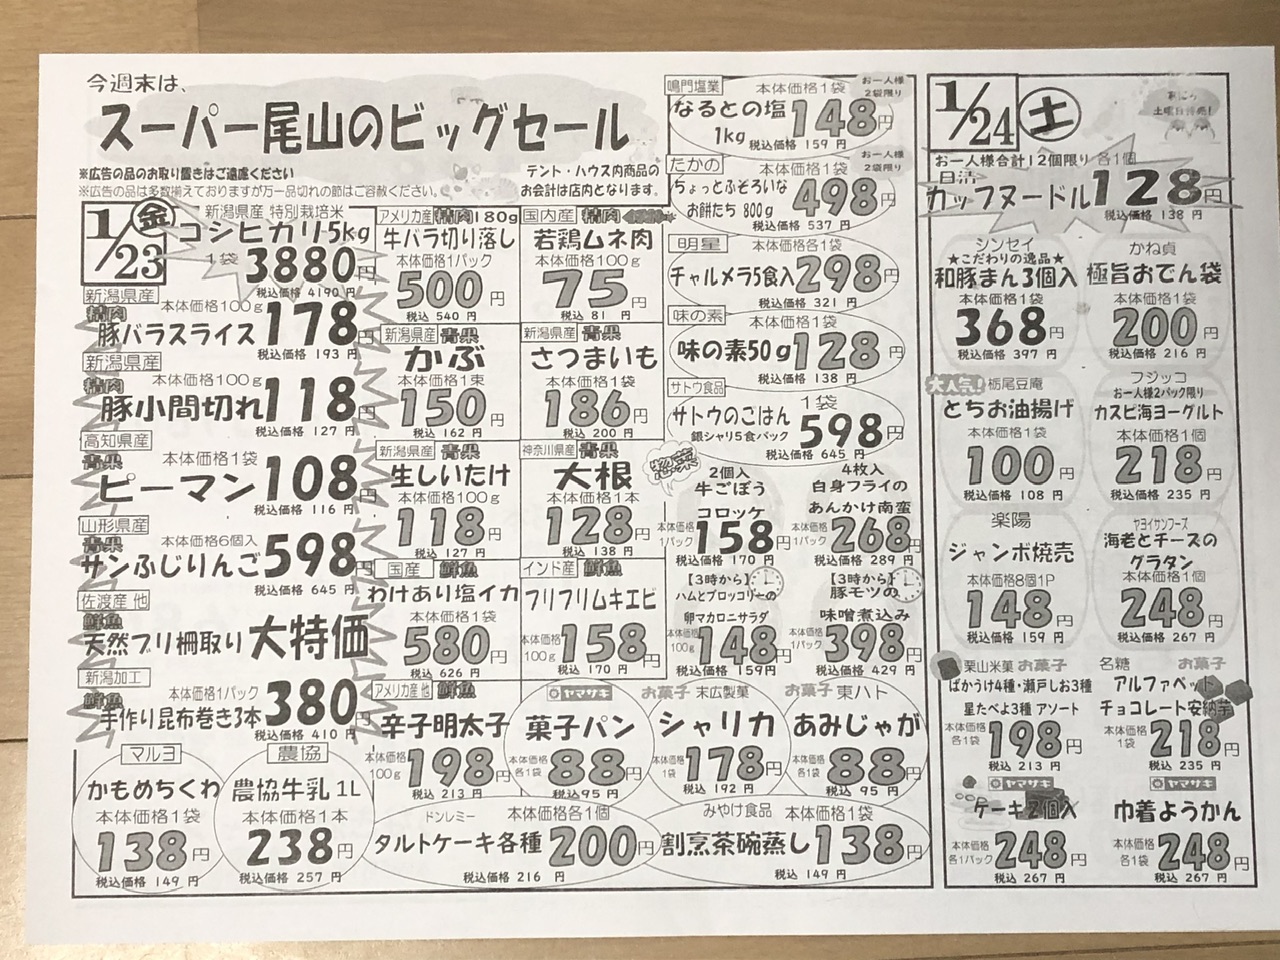 今週末は、
スーパー尾山のビッグセール
※広告の品のお取り置きはご遠慮ください
※広告の品は多数揃えておりますが万一品切れの節はご容赦ください。
テント・ハウス内商品の
お会計は店内となります。
1/23 金
新潟県産 特別栽培米
コシヒカリ5kg
1袋 3880円
税込価格 4190円
新潟県産
精肉
本体価格100g
豚バラスライス 178円
税込価格 193円
新潟県産
精肉
本体価格100g
豚小間切れ 118円
税込価格 127円
高知県産
青果
本体価格1袋
ピーマン 108円
税込価格 116円
山形県産
青果
本体価格6個入
サンふじりんご 598円
税込価格 645円
佐渡産 他
鮮魚
天然ブリ柵取り 大特価
新潟加工
鮮魚
本体価格1パック
手作り昆布巻き3本 380円
税込価格 410円
アメリカ産 精肉 180g
牛バラ切り落し
本体価格1パック
500円
税込 540円
国内産 精肉
若鶏ムネ肉
本体価格100g
75円
税込 81円
新潟県産 青果
かぶ
本体価格1束
150円
税込 162円
新潟県産 青果
さつまいも
本体価格1袋
186円
税込 200円
新潟県産 青果
生しいたけ
本体価格100g
118円
税込 127円
神奈川県産 青果
大根
本体価格1本
128円
税込 138円
国産 鮮魚
わけあり塩イカ
本体価格1袋
580円
税込 626円
インド産 鮮魚
プリプリムキエビ
本体価格
100g 158円
税込 170円
アメリカ産 他 鮮魚
辛子明太子
本体価格
100g 198円
税込 213円
ヤマザキ
菓子パン
本体価格
各1袋 88円
税込 95円
お菓子 末広製菓
シャリカ
本体価格
1袋 178円
税込 192円
お菓子 東ハト
あみじゃが
本体価格
各1袋 88円
税込 95円
マルヨ
かもめちくわ
本体価格1袋
138円
税込価格 149円
農協
農協牛乳 1L
本体価格1本
238円
税込価格 257円
ドンレミー 本体価格各1個
タルトケーキ各種 200円
税込価格 216円
みやけ食品 本体価格1袋
割烹茶碗蒸し 138円
税込 149円
鳴門塩業 本体価格1袋
お一人様
2袋限り
なるとの塩
1kg 148円
税込価格 159円
たかの 本体価格1袋
お一人様
2袋限り
ちょっとふぞろいな
お餅たち 800g 498円
税込価格 537円
明星 本体価格各1袋
チャルメラ5食入 298円
税込価格 321円
味の素 本体価格1袋
味の素50g 128円
税込価格 138円
サトウ食品 1袋
サトウのごはん
銀シャリ5食パック 598円
税込価格 645円
惣菜
2個入
牛ごぼう
コロッケ
本体価格
1パック 158円
税込価格 170円
4枚入
白身フライの
あんかけ南蛮
本体価格
1パック 268円
税込価格 289円
【3時から】
ハムとブロッコリーの
卵マカロニサラダ
本体価格
100g 148円
税込価格 159円
【3時から】
豚モツの
味噌煮込み
本体価格
1パック 398円
税込価格 429円
1/24 土
お一人様合計12個限り 各1個
日清
カップヌードル 128円
税込価格 138円
シンセイ
★こだわりの逸品★
和豚まん3個入
本体価格1袋
368円
税込価格 397円
かね貞
極旨おでん袋
本体価格1袋
200円
税込価格 216円
大人気! 栃尾豆庵
とちお油揚げ
本体価格1袋
100円
税込価格 108円
フジッコ
お一人様2パック限り
カスピ海ヨーグルト
本体価格1個
218円
税込価格 235円
楽陽
ジャンボ焼売
本体価格8個1P
148円
税込価格 159円
ヤヨイサンフーズ
海老とチーズの
グラタン
本体価格1個
248円
税込価格 267円
栗山米菓 お菓子
ばかうけ4種・瀬戸しお3種
星たべよ3種 アソート
本体価格
各1袋 198円
税込 213円
名糖 お菓子
アルファベット
チョコレート安納芋
本体価格
1袋 218円
税込 235円
ヤマザキ
ケーキ2個入
本体価格
各1パック 248円
税込 267円
ヤマザキ
巾着ようかん
本体価格
各1袋 248円
税込 267円